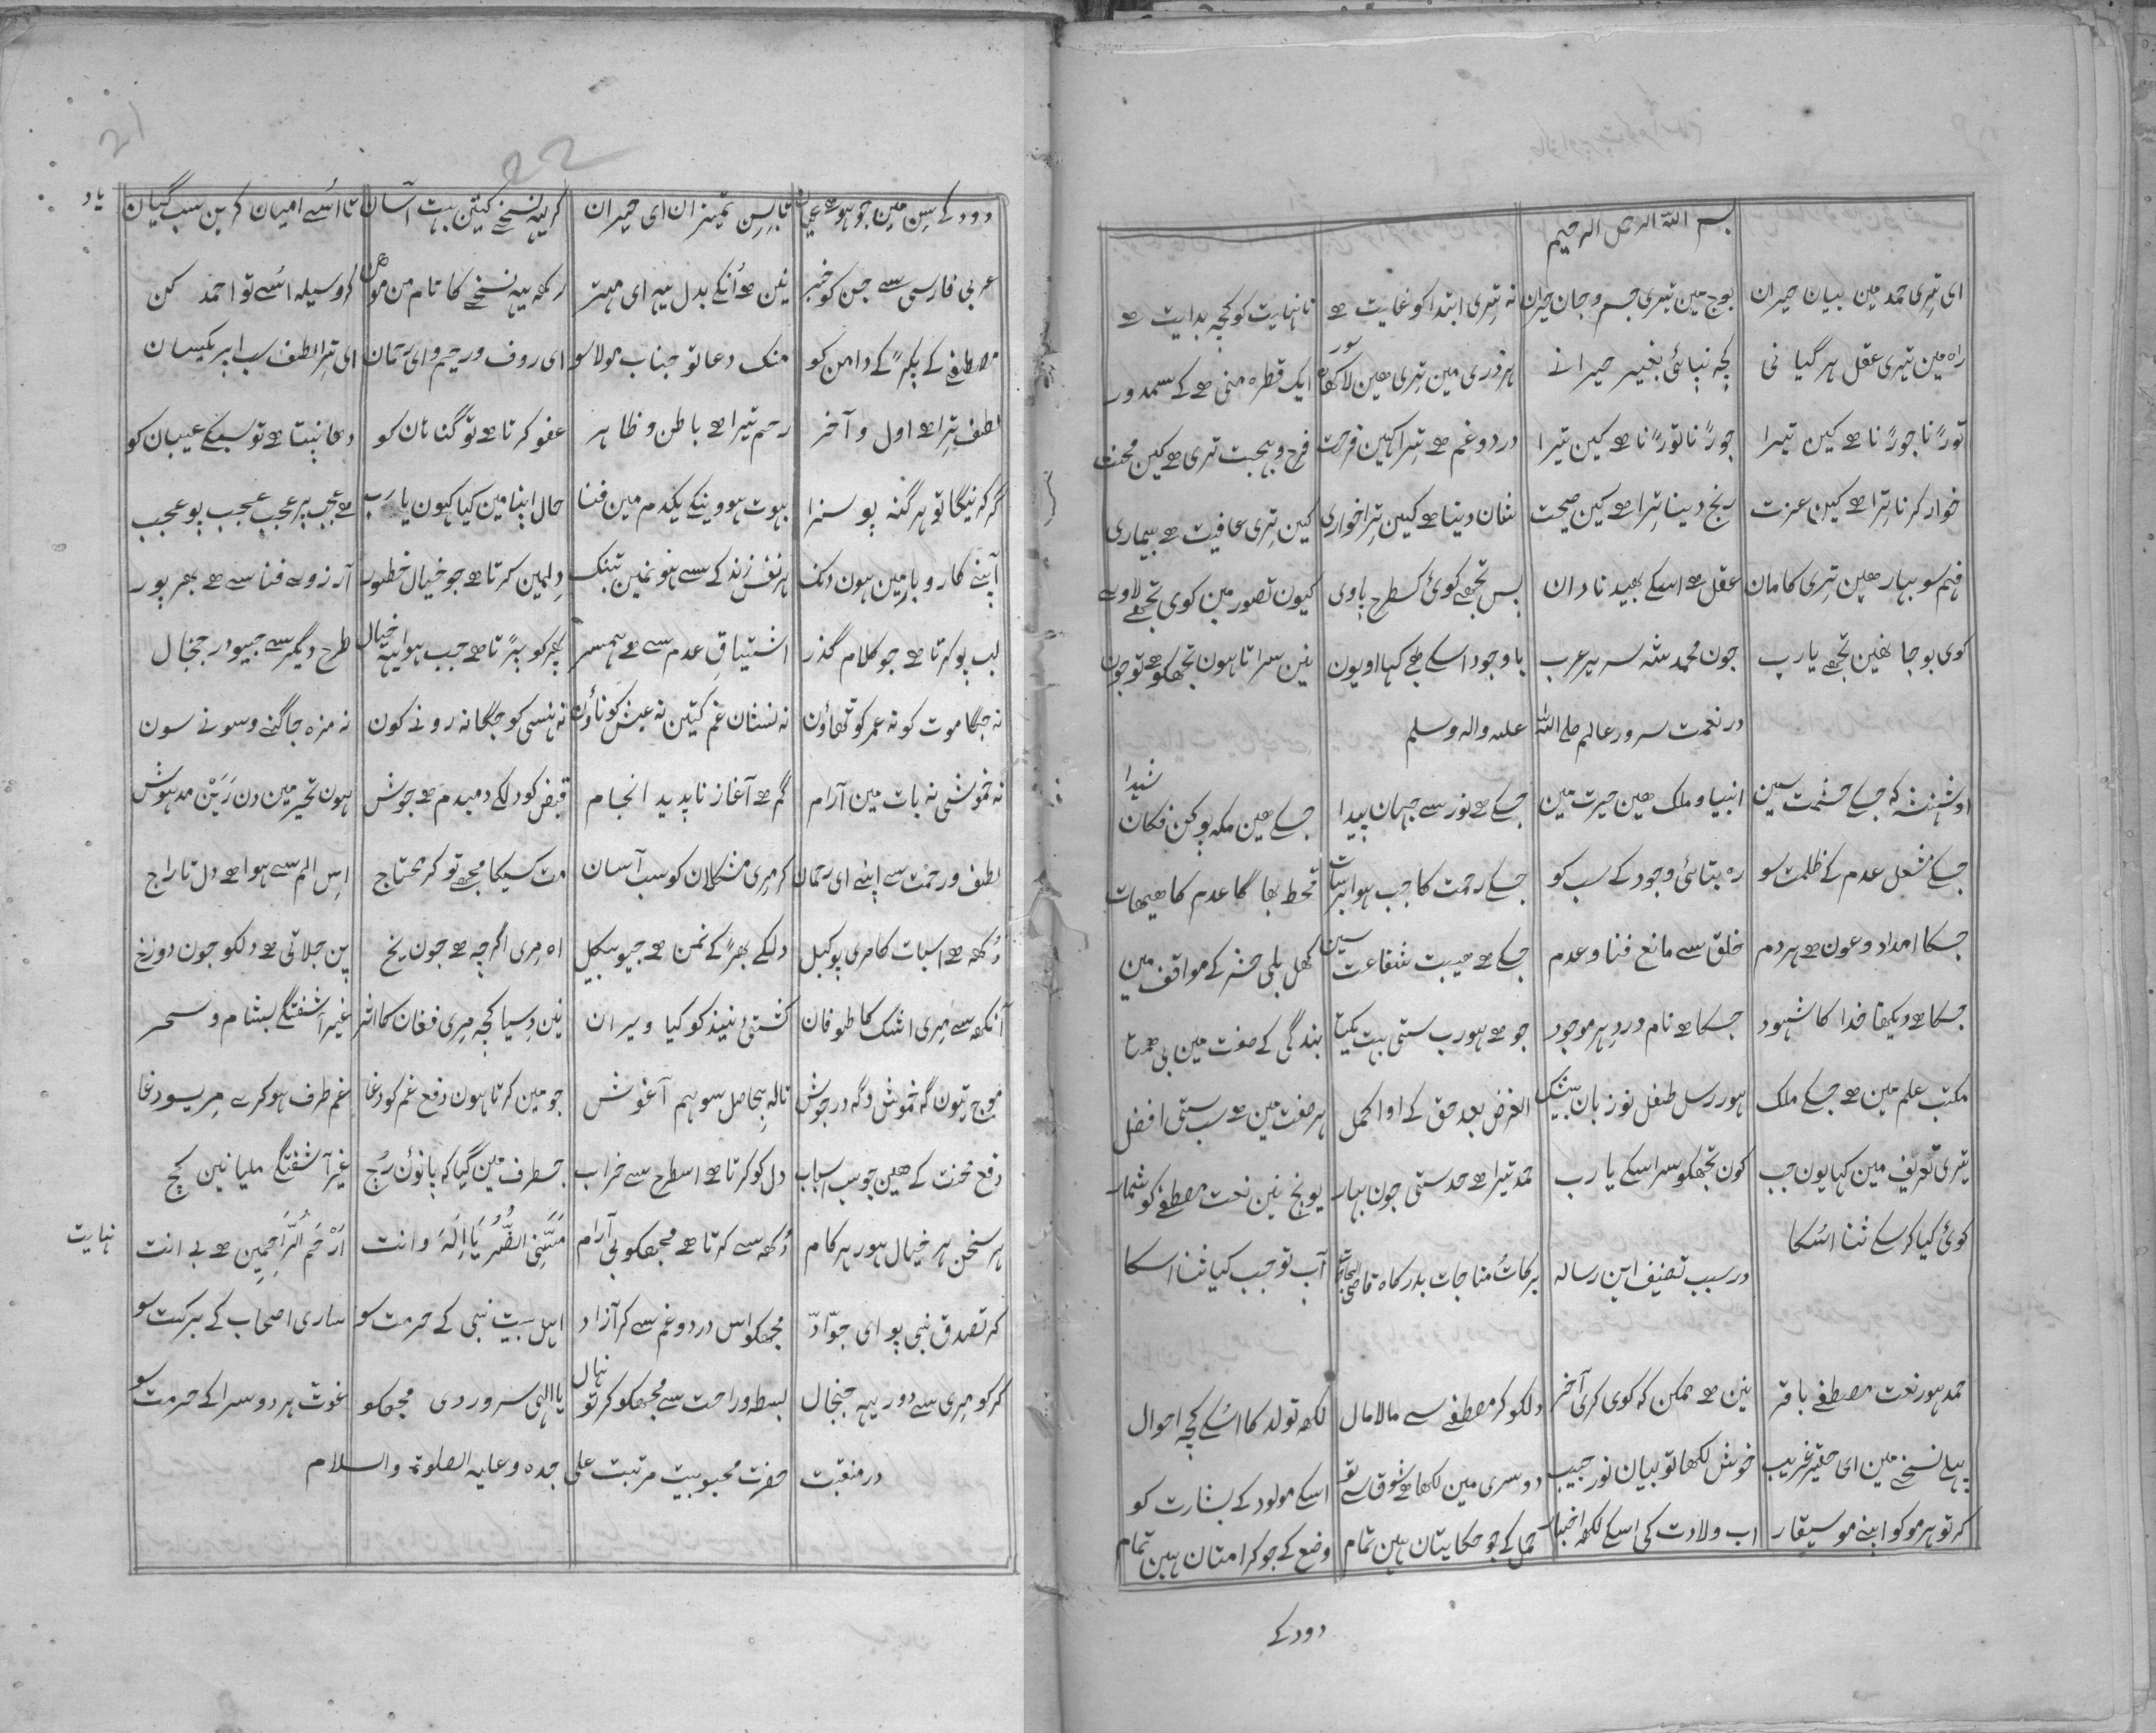 بسم الله الرحمن الرحیم
ای تیری حمد مین بیان حیران بوج مین تیری جسم و جان حیران نہ تیری ابتدا کو غایت ھے نا نہایت کو کچہ بدایت ھے
راہ مین تیری عقل ہر گیانی کچہ نپائی بغیر حیرانے ہر ذری مین تیری ھین لاکھان سور ایک قطرہ منی ھے کے سمدور
توڑنا جوڑنا ھے کین تیرا جوڑنا توڑنا ھے کین تیرا درد و غم ھے تیرا کہین فرحت فرح و بہجت تری ھے کین محنت
خوار کرنا ترا ھے کین عزت رنج دینا ترا ھے کین صحت شان دینا ھے کہین ترا خواری کین تری عافیت ھے بیماری
فہم سو بہار ھین تری کامان عقل ھے اسکے بھید نادان بس تجھے کوئی کسطرح پاوی کیون تصور مین کوی تجھے لاوے
کوی بوجا نھین تجھے یارب جون محمد شہ سریر عرب باوجود اسکے کہا او یون نین سراتا ہون تجھکو ھے تو جون
در نعمت سرور عالم صلی اللہ علیہ والہ وسلم
او شہنشہ کہ جسکے حشمت سین انبیا و ملک ھین حیرت مین جسکے ھے نور سے جہان پیدا جسکے ھین مکہ پو کن فکان شیدا
جسکے مشعل عدم کے ظلمت سو رہ بتائی وجود کے سب کو جسکے رحمت کا جب ہوا برسات قحط بھاگا عدم کا ھیھات
جسکا امداد و عون ھے ہر دم خلق سے مانع فنا و عدم جسکے ھے ھیبت شفاعت سین کھل بلی حشر کے مواقف مین
جسکا ھے دیکھنا خدا کا شہود جسکا ھے نام ورد ہر موجود جو ھے ہور رب ستی بہت یکتا بندگی کے صفت مین بی ھمتا
مکتب علم مین ھے جسکے ملک ہور رسل طفل نو زبان بیشک الغرض بعد حق کے او اکمل ہر صفت مین ھے سب ستی افضل
تیری تعریف مین کہا یون جب کون تجھکو سرا سکے یا رب حمد تیرا ھے حد ستی جون بہار یونچ نین نعت مصطفے کو شمار
کوئی کیا کر سکے ثنا اسکا آپ تو جب کیا ثنا اسکا
در سبب تصنیف این رسالہ برکات مناجات بدرگاہ قاضی الحاجات
حمد ہور نعت مصطفے باقر نین ھے ممکن کہ کوی کری آخر دلکو کر مصطفے سے مالامال لکھ تولد کا اسکے کچہ احوال
پہلے نسخے مین ای حقیر غریب خوش لکھا تو بیان نور حبیب دوسری مین لکھا ھے شوق سے تو اسکے مولود کے بشارت کو
کر تو ہر مو کو اپنے موسیقار اب ولادت کی اسکے لکھ اخبار حمل کے جو حکایتان ہین تمام وضع کے جو کرامتان ہین تمام
دود کے
21
22
دود کے سِن مین جو ہو ھے عیان تا برس تمیزان ای حیران کر یہ نسخے کیتن بہت آسان تا اُسے امیان کرین سب گیان
یاد
عربی فارسی سے جن کو خبر نین ھے اُنکے بدل یہ ای مہتر رکھ یہ نسخے کا نام من موھن کر وسیلہ اسُے تو احمد کن
مصطفے کے پکڑ کے دامن کو منگ دعا تو جناب مولا سو ای روف و رحیم و ای رحمان ای ترا لطف سب اپر یکسان
لطف ترا ھے اول و آخر رحم تیرا ھے باطن و ظاہر عفو کرتا ھے تو گناہان کو دھانپتا ھے تو سبکے عیبان کو
گر کرنیگا تو ہر گنہ پو سزا بہوت ہووینگے یکدم مین فنا حال اپنا مین کیا کہون یا رب ھے عجب پر عجب عجب پو عجب
آپنے کاروبار مین ہون دنگ ہر نفس زندگی سے ہو نمین تنگ دلمین کرتا ھے جو خیال خطور آرزوے فنا سے ھے بھرپور
لب پو کرتا ھے جو کلام گذر اشتیاق عدم سے ھے ہمسر پھر کو پڑتا ھے جب ہوا یہ خیال طرح دیگر سے جیو اپر جنجال
نہ جگا موت کو نہ عمر کو ٹھاؤن نہ نشان غم کیتین نہ عیش کو ناؤن نہ ہنسی کو جگا نہ رونے کون نہ مزہ جاگنے و سونے سون
نہ خموشی نہ بات مین آرام گم ھے آغاز ناپدید انجام قبض کو دلکے دمبدم ھے جوش ہون تحیر مین دن رَین مدہوش
لطف و رحمت سے اپنے ای رحمان کر مری مشکلان کو سب آسان مت کسیکا مجھے تو کر محتاج اس الم سے ہوا ھے دل تاراج
دُکھ ھے اسبات کا مری پو کبل دلکے بھڑکے نمن ھے جیو بیکل اہ مری اگرچہ ھے جون یخ پن جلاتی ھے دلکو جون دوزخ
آنکھ سے مری اشک کا طوفان کشتیٔ نیند کو کیا ویران نین دِسیا کچہ مری فغان کا اثر غیر آشفتگی بشام و سحر
موج تیون گہ خموش و گہ در جوش نالہ بیحاصل سو ہم آغوش جو مین کرتا ہون دفع غم کو دغا غم طرف ہو کرے مریسو دغا
دفع محنت کے ھین جو سب اسباب دل کو کرتا ھے اسطرح سے خراب جسطرف مین گیا کہ پاؤن رُچ غیر آشفتگی ملیا نین کچ
ہر سخن ہر خیال ہور ہر کام دُکھ سے کرتا ھے مجھکو بی آرام مَسَّنِیَ الضُّرُّ یَا اِلٰہَ وانت اَرْحَمُ الرَّاحِمِین ھے بے انت
نہایت
کر تصدق نبی پو ای جوّاد مجھکو اس درد و غم سے کر آزاد اہل بیت نبی کے حرمت سو ساری اصحاب کے برکت سو
کر کو مری سے دور یہہ جنجال بسط و راحت سے مجھکو کر تو نہال یا الہی سروردی مجھکو غوث ہر دو سرا کے حرمت سو
در منقبت حضرت محبوبیت مرتبت علی جدہ وعلیہ الصلوة والسلام